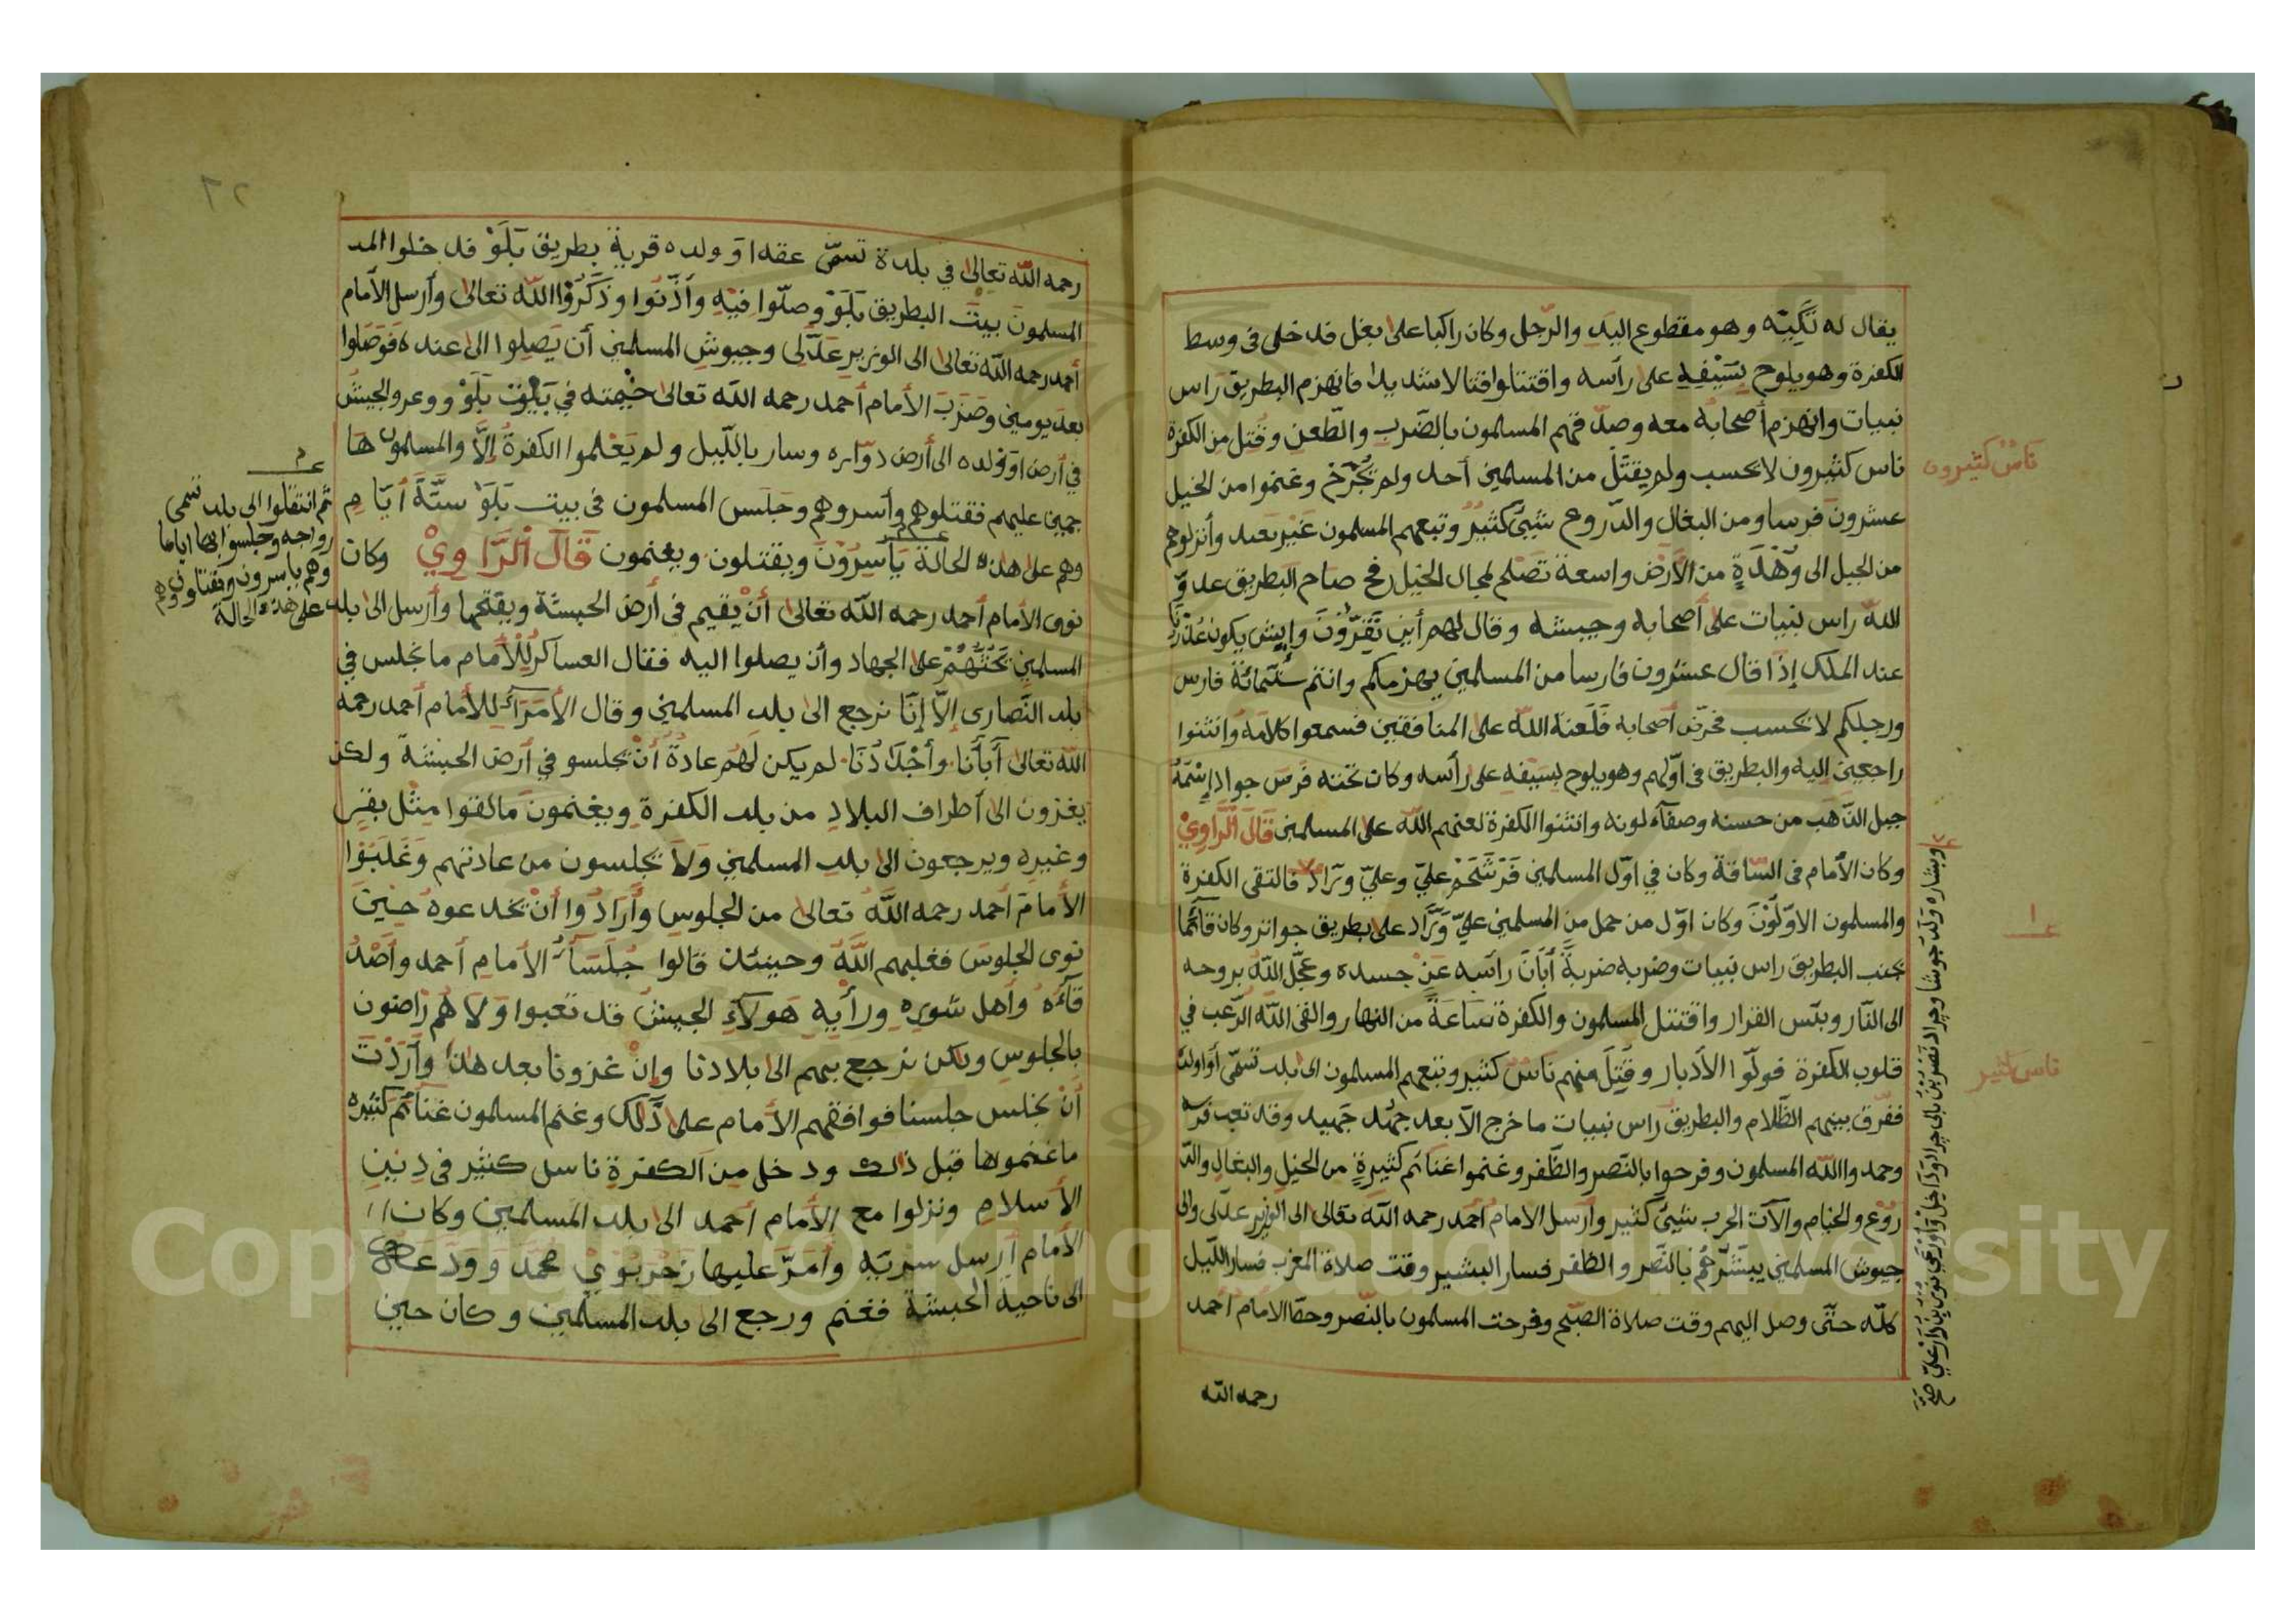 يقال له تكيه وهو مقطوع اليد والرّجل وكان راكبا على بغل قد خلى في وسط
الكفرة وهو يلوح بسَيْفِهِ على رأسه واقتتلوا قتالا شديدا فانهزم البطريق راس
نبيات وانهزم أصحابه معه وصدّ فهم المسلمون بالضّرب والطّعن وقُتل من الكفرة
ناس كثيرون لا تحسب ولم يقتل من المسلمين أحد ولم تُجْرَح وغنموا من الخيل
عشرون فرسا ومن البغال والدّروع شيئ كثيرٌ وتبعهم المسلمون غير بعد وأنزلوهم
من الجبل الى وَهْدَةٍ من الأرض واسعة تصلح لمجال الخيل صاح البطريق عدوّ
الله راس نبيات على أصحابه وجيشه وقال لهم أين تَفِرّونَ وايش يكون عُذْرنا
عند الملك إذا قال عشرون فارسا من المسلمين يهزمكم وانتم ستّمائة فارس
ورجلكم لا تحسب فحرّض أصحابه فَلَعنة الله على المنافقين فسمعوا كلامه وانثنوا
راجعين اليه والبطريق في اوّلهم وهو يلوح بسَيْفِهِ على رأسه وكان تحته فَرَس جواد إسْمهُ
جبل الذّهب من حسنه وصفآء لونه وانثنوا الكفرة لعنهم الله على المسلمين قَالَ الرّاوِيْ
وكان الأمام في السّاقة وكان في اوّل المسلمين فَرْشَحَمْ عليّ وعليّ وَرَّادْ فالتقى الكفرة
والمسلمون الاوّلُوْنَ وكان اوّل من حمل من المسلمين عليّ وَرَّاد على بطريق جوانز وكان قآئما
بجنب البطريق راس نبيات وضربه ضربةً أبَانَ راسَه عَنْ جسده وعَجّل اللهُ بروحه
الى النّار وبئس القرار واقتتل المسلمون والكفرة سَاعَةً من النهار والقى الله الرّعب في
قلوب الكفرة فولّوا الأدبار وقُتِلَ منهم ناسٌ كثير وتبعهم المسلمون الى بلد تسمّى أواولده
ففرق بينهم الظّلام والبطريق راس نبيات ما خرج الاّ بعد جهْد جهيد وقد تعب فرسه
وحمدوا الله المسلمون وفرحوا بالنّصر والظّفر وغنموا غنائم كثيرةٍ من الخيل والبغال والدّ
روْع والخيام والآت الحرب شيئ كثير وأرسل الامام أحمد رحمه الله تعالى الى الوزير عدّلى والى
جيوش المسلمين يبشّرهُم بالنّصر والظّفر فسار البشير وقت صلاة المغرب فسار اللّيل
كلّه حتّى وصل اليهم وقت صلاة الصّبح وفرحت المسلمون بالنّصر وحطّ الامام أحمد
رحمه الله
ناس كثيرون
ناس كثير
رحمه الله تعالى في بلدة تسمّى عقدا و ولده قرية بطريق بَلَوْ قد خلوا المد
المسلمون بيت البطريق بَلَوْ وصلّوا فيْهِ وأذّنوا وذَكَرُوا الله تعالى وأرسل الأمام
أحمد رحمه الله تعالى الى الوزير عَدّلى وجيوش المسلمين أن يَصِلوا الى عنده فَوَصَلوا
بعد يومين وضَرَبَ الأمام أحمد رحمه الله تعالى خَيْمته في بَيْت بَلَوْ و وعر والجيشُ
في أرض اوْوَلده الى أرض دوّاره وسار بالليل ولم يَعْلموا الكفرةُ إلاّ والمسلمون هَا
جمين عليهم فقتلوهم وأسروهم وجَلَسَ المسلمون في بيت بَلَوْ ستّةَ أيّامٍ
وهم على هذه الحالة يَأسِرُوْنَ ويقتلون ويغنمون قَالَ الرَّاوِيْ وكان
نوى الأمام أحمد رحمه الله تعالى أنْ يُقيم في أرض الحبشة ويفتحها وأرسل الى بلد
المسلمين تَحُثُّهُمْ على الجهاد وأن يصلوا اليه فقال العساكر للأمام ما نجلس في
بلد النّصارى إلاّ إنّا نرجع الى بلد المسلمين وقال الأمَرَآء للأمام أحمد رحمه
الله تعالى آبَآئنَا وأجْدَادُنَا لم يكن لَهُم عادةٌ أنْ يجلسو في أرض الحبشة ولكن
يغزون الى أطراف البلاد من بلد الكفرة ويغنمونَ ما لقوا مِثْل بقرٍ
وغيره ويرجعون الى بلد المسلمين وَلاَ يجلسون من عادتهم وَغَلَبَوْا
الأمامَ أحمد رحمه اللهُ تعالى من الجلوس وأرَادُوا أنْ يخدعوهُ حِيْنَ
نوى الجلوسَ فغلبهم اللهُ وحينئذ قَالوا جُلَسَآءُ الأمام أحمد وأصْدُ
قآءه وأهل شوره ورأيه هَولآء الجيشُ قد تعبوا وَلاَ هُم رَاضون
بالجلوسِ ولكن نرجع بهم الى بلادنا وإنْ غزونا بعد هذا وأرَدْتَ
أنْ نجلس جلسنا فوافقهم الأمام على ذَلك وغنم المسلمون غنآئم كثيره
ما غنموها قبل ذلك ودخل من الكفرة ناس كثير في دين
الأسلام ونزلوا مع الأمام أحمد الى بلد المسلمين وكان
الأمام أرسل سريّه وأمَرّ عليها زَحْرَبُوْيْ محمّد وودّعه
الى ناحية الحبشة فغنم ورجع الى بلد المسلمين وكان حين
ثم انتقلوا الى بلد تسمى
رواجه وجلسوا بها اياما
وهم يأسرون ويقتلون وهم
على هذه الحالة
٢٦
Copyright © King Saud University